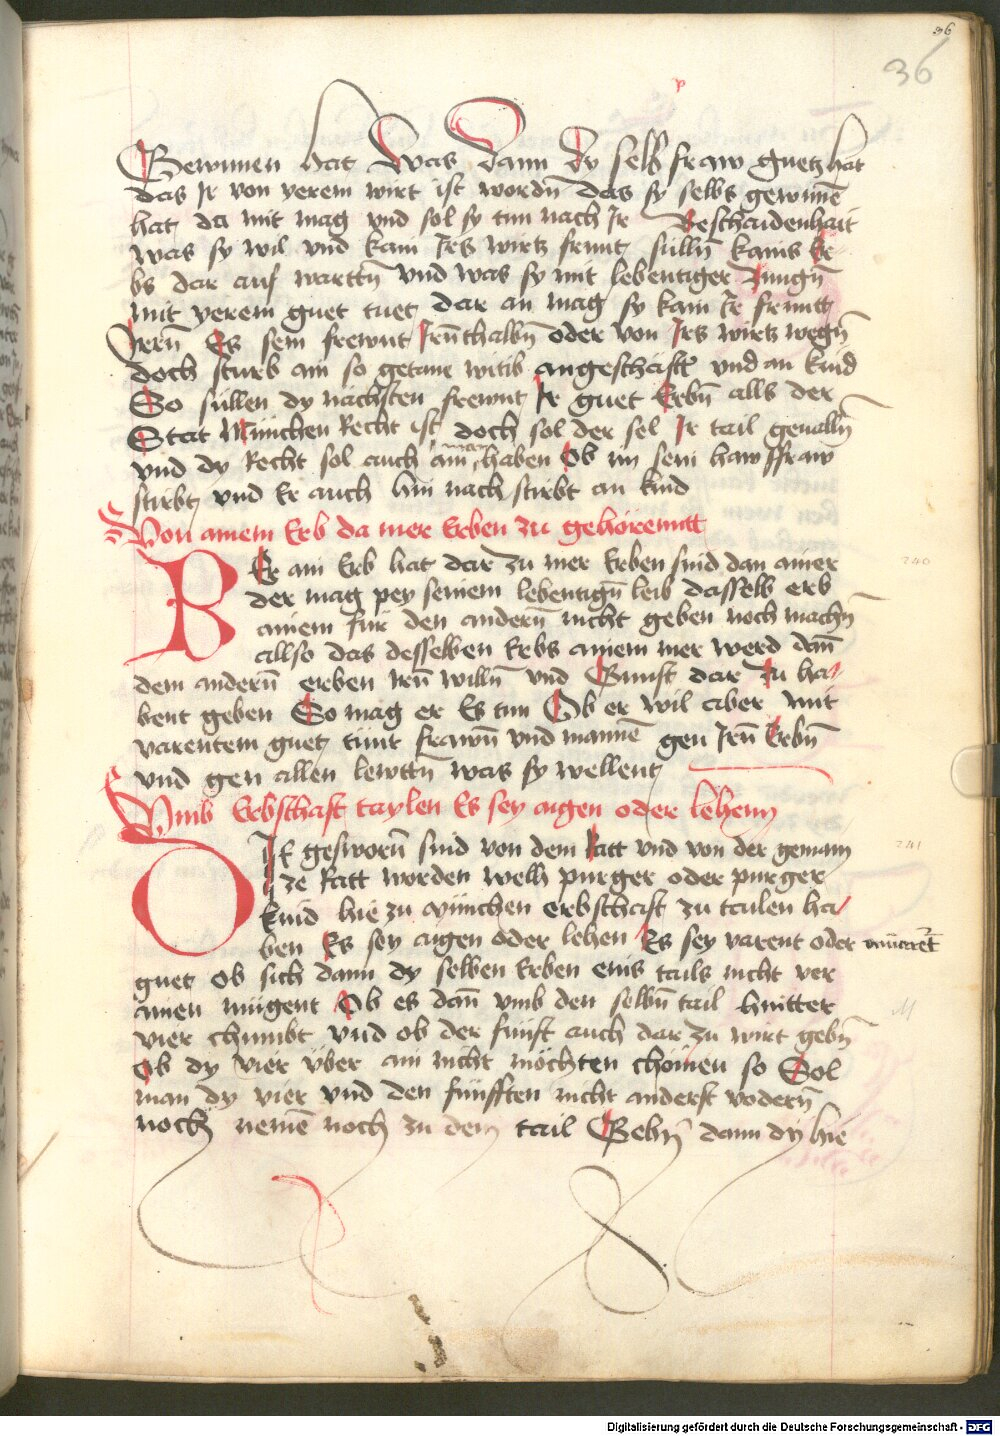 36
36
Gewunnen hat Was dann dy selb fraw guetz hat
das Jr von yerem wirt ist wordn̄ das sy selbs gewunnē
hat da mit mag vnd sol sy tun nach Jr Beschaidenhait
was sy wil vnd kain Jrs wirtz freunt sülln̄ kains Er
bs dar auf warttn̄ vnd was sy mit lebentiger Zungn̄
mit yerem guet tuet dar an mag sy kain Jr freuntt
Jrrn̄ Es sein frewnt Jrn̄thalbn̄ oder von Jrs wirtz wegn̄
doch sturb ain so getane witib angeschäfft vnd an kind
So süllen dy nächsten frewnt Jr guet Erbn̄ alls der
Stat München Recht ist doch sol der sel Jr tail geualln̄
vnd dy Recht sol auch ain man haben Ob im sein hawsffraw
stirbt vnd Er auch hin nach stirbt an kind
Von ainem Erb da mer Erben zu gehörenntt
240
Wer ain Erb hat dar zu mer Erben sind dan ainer
der mag pey seinem lebentign̄ leib dasselb erb
ainem für den andern̄ nicht geben noch machn̄
allso das desselben Erbs ainem mer werd dan̄
dem andern̄ erben Jrn̄ willn̄ vnd Gunst dar zu ha
bent geben So mag er Es tun Ob er wil aber mit
varentem guet tünt frawn̄ vnd mannē gen Jrn̄ Erbn̄
vnd gen allen lewttn̄ was sy wellent
Vmb Erbschaft taylen Es sey aigen oder lehenn
241
Die gesworn̄ sind von dem Ratt vnd von der gemain
ze Ratt worden welh purger oder purger
kind hie zu München erbschaft zu tailen ha
ben Es sey aigen oder lehen Es sey varent oder vnuarēt
guet ob sich dann dy selben Erben enis tails nicht ver
ainen mügent Ob es dan̄ vmb den selbn̄ tail hintter
vier chumbt vnd ob der fünft auch dar zu wirt gebn̄
Ob dy vier über ain nicht möchten chömen so Sol
man dy vier vnd den fünfften nicht anderst vodern̄
noch nemē noch zu dem tail Gebn̄ dann dy hie
Digitalisierung gefördert durch die Deutsche Forschungsgemeinschaft - DFG